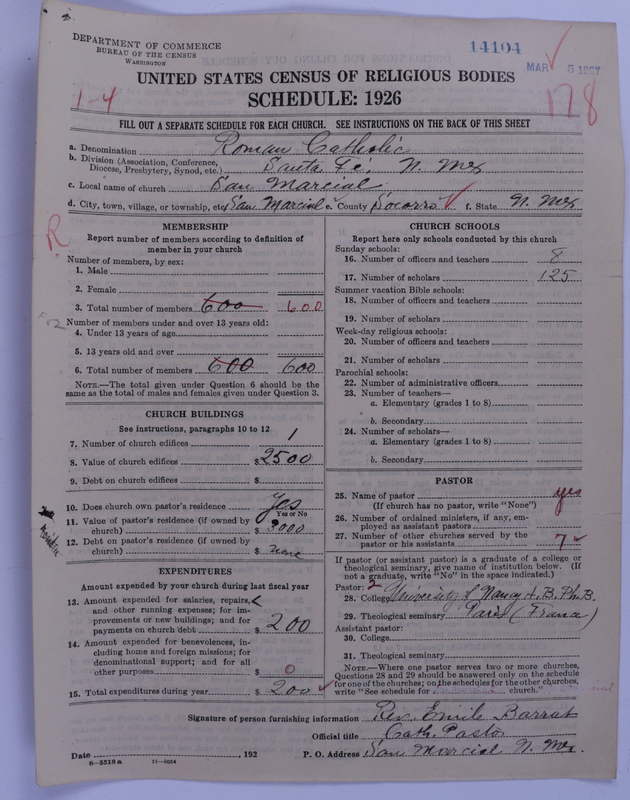 DEPARTMENT OF COMMERCE
BUREAU OF THE CENSUS
WASHINGTON
14104
MAR 5 1927
1-4
178
UNITED STATES CENSUS OF RELIGIOUS BODIES
SCHEDULE: 1926
FILL OUT A SEPARATE SCHEDULE FOR EACH CHURCH. SEE INSTRUCTIONS ON THE BACK OF THIS SHEET
a. Denomination Roman Catholic
b. Division (Association, Conference, Diocese, Presbytery, Synod, etc.) Santa Fé, N. Mex
c. Local name of church San Marcial
d. City, town, village, or township, etc. San Marcial e. County Socorro f. State N. Mex
R
MEMBERSHIP
Report number of members according to definition of
member in your church
Number of members, by sex:
1. Male
2. Female
3. Total number of members 600 600
Number of members under and over 13 years old:
4. Under 13 years of age
5. 13 years old and over
6. Total number of members 600 600
NOTE.—The total given under Question 6 should be
same as the total of males and females given under Question 3.
CHURCH BUILDINGS
See instructions, paragraphs 10 to 12
7. Number of church edifices 1
8. Value of church edifices $ 2500
9. Debt on church edifices $
10. Does church own pastor's residence Yes
Yes or No
11. Value of pastor's residence (if owned by
church) $ 3000
12. Debt on pastor's residence (if owned by
church) $ none
EXPENDITURES
Amount expended by your church during last fiscal year
13. Amount expended for salaries, repairs,
and other running expenses; for im-
provements or new buildings; and for
payments on church debt $ 200
14. Amount expended for benevolences, in-
cluding home and foreign missions; for
denominational support; and for all
other purposes $ 0
15. Total expenditures during year $ 200
CHURCH SCHOOLS
Report here only schools conducted by this church
Sunday schools:
16. Number of officers and teachers 8
17. Number of scholars 125
Summer vacation Bible schools:
18. Number of officers and teachers
19. Number of scholars
Week-day religious schools:
20. Number of officers and teachers
21. Number of scholars
Parochial schools:
22. Number of administrative officers
23. Number of teachers—
a. Elementary (grades 1 to 8)
b. Secondary
24. Number of scholars—
a. Elementary (grades 1 to 8)
b. Secondary
PASTOR
25. Name of pastor yes
(If church has no pastor, write "None")
26. Number of ordained ministers, if any, em-
ployed as assistant pastors
27. Number of other churches served by the
pastor or his assistants 7
If pastor (or assistant pastor) is a graduate of a college or
theological seminary, give name of institution below. (If
not a graduate, write "No" in the space indicated.)
Pastor: 2
28. College University of Nancy A. B. Ph. B.
29. Theological seminary Paris (France)
Assistant pastor:
30. College
31. Theological seminary
NOTE.—Where one pastor serves two or more churches,
Questions 28 and 29 should be answered only on the schedule
for one of the churches; on the schedules for the other churches,
write "See schedule for church."
Signature of person furnishing information Rev. Emile Barrat
Official title Cath. Pastor
Date , 192 P. O. Address San Marcial N. Mex.
8—5518 a 11—9664